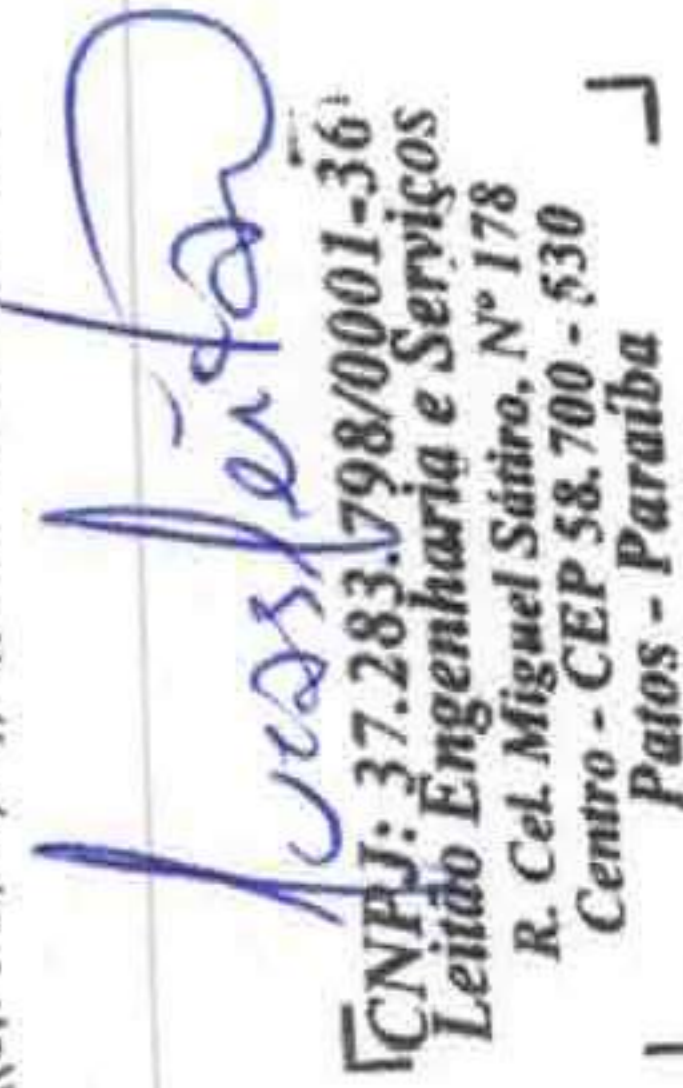 Lucas Leitão
CNPJ: 37.283.798/0001-36
Leitão Engenharia e Serviços
R. Cel. Miguel Sátiro, Nº 178
Centro - CEP 58.700 - 530
Patos - Paraíba